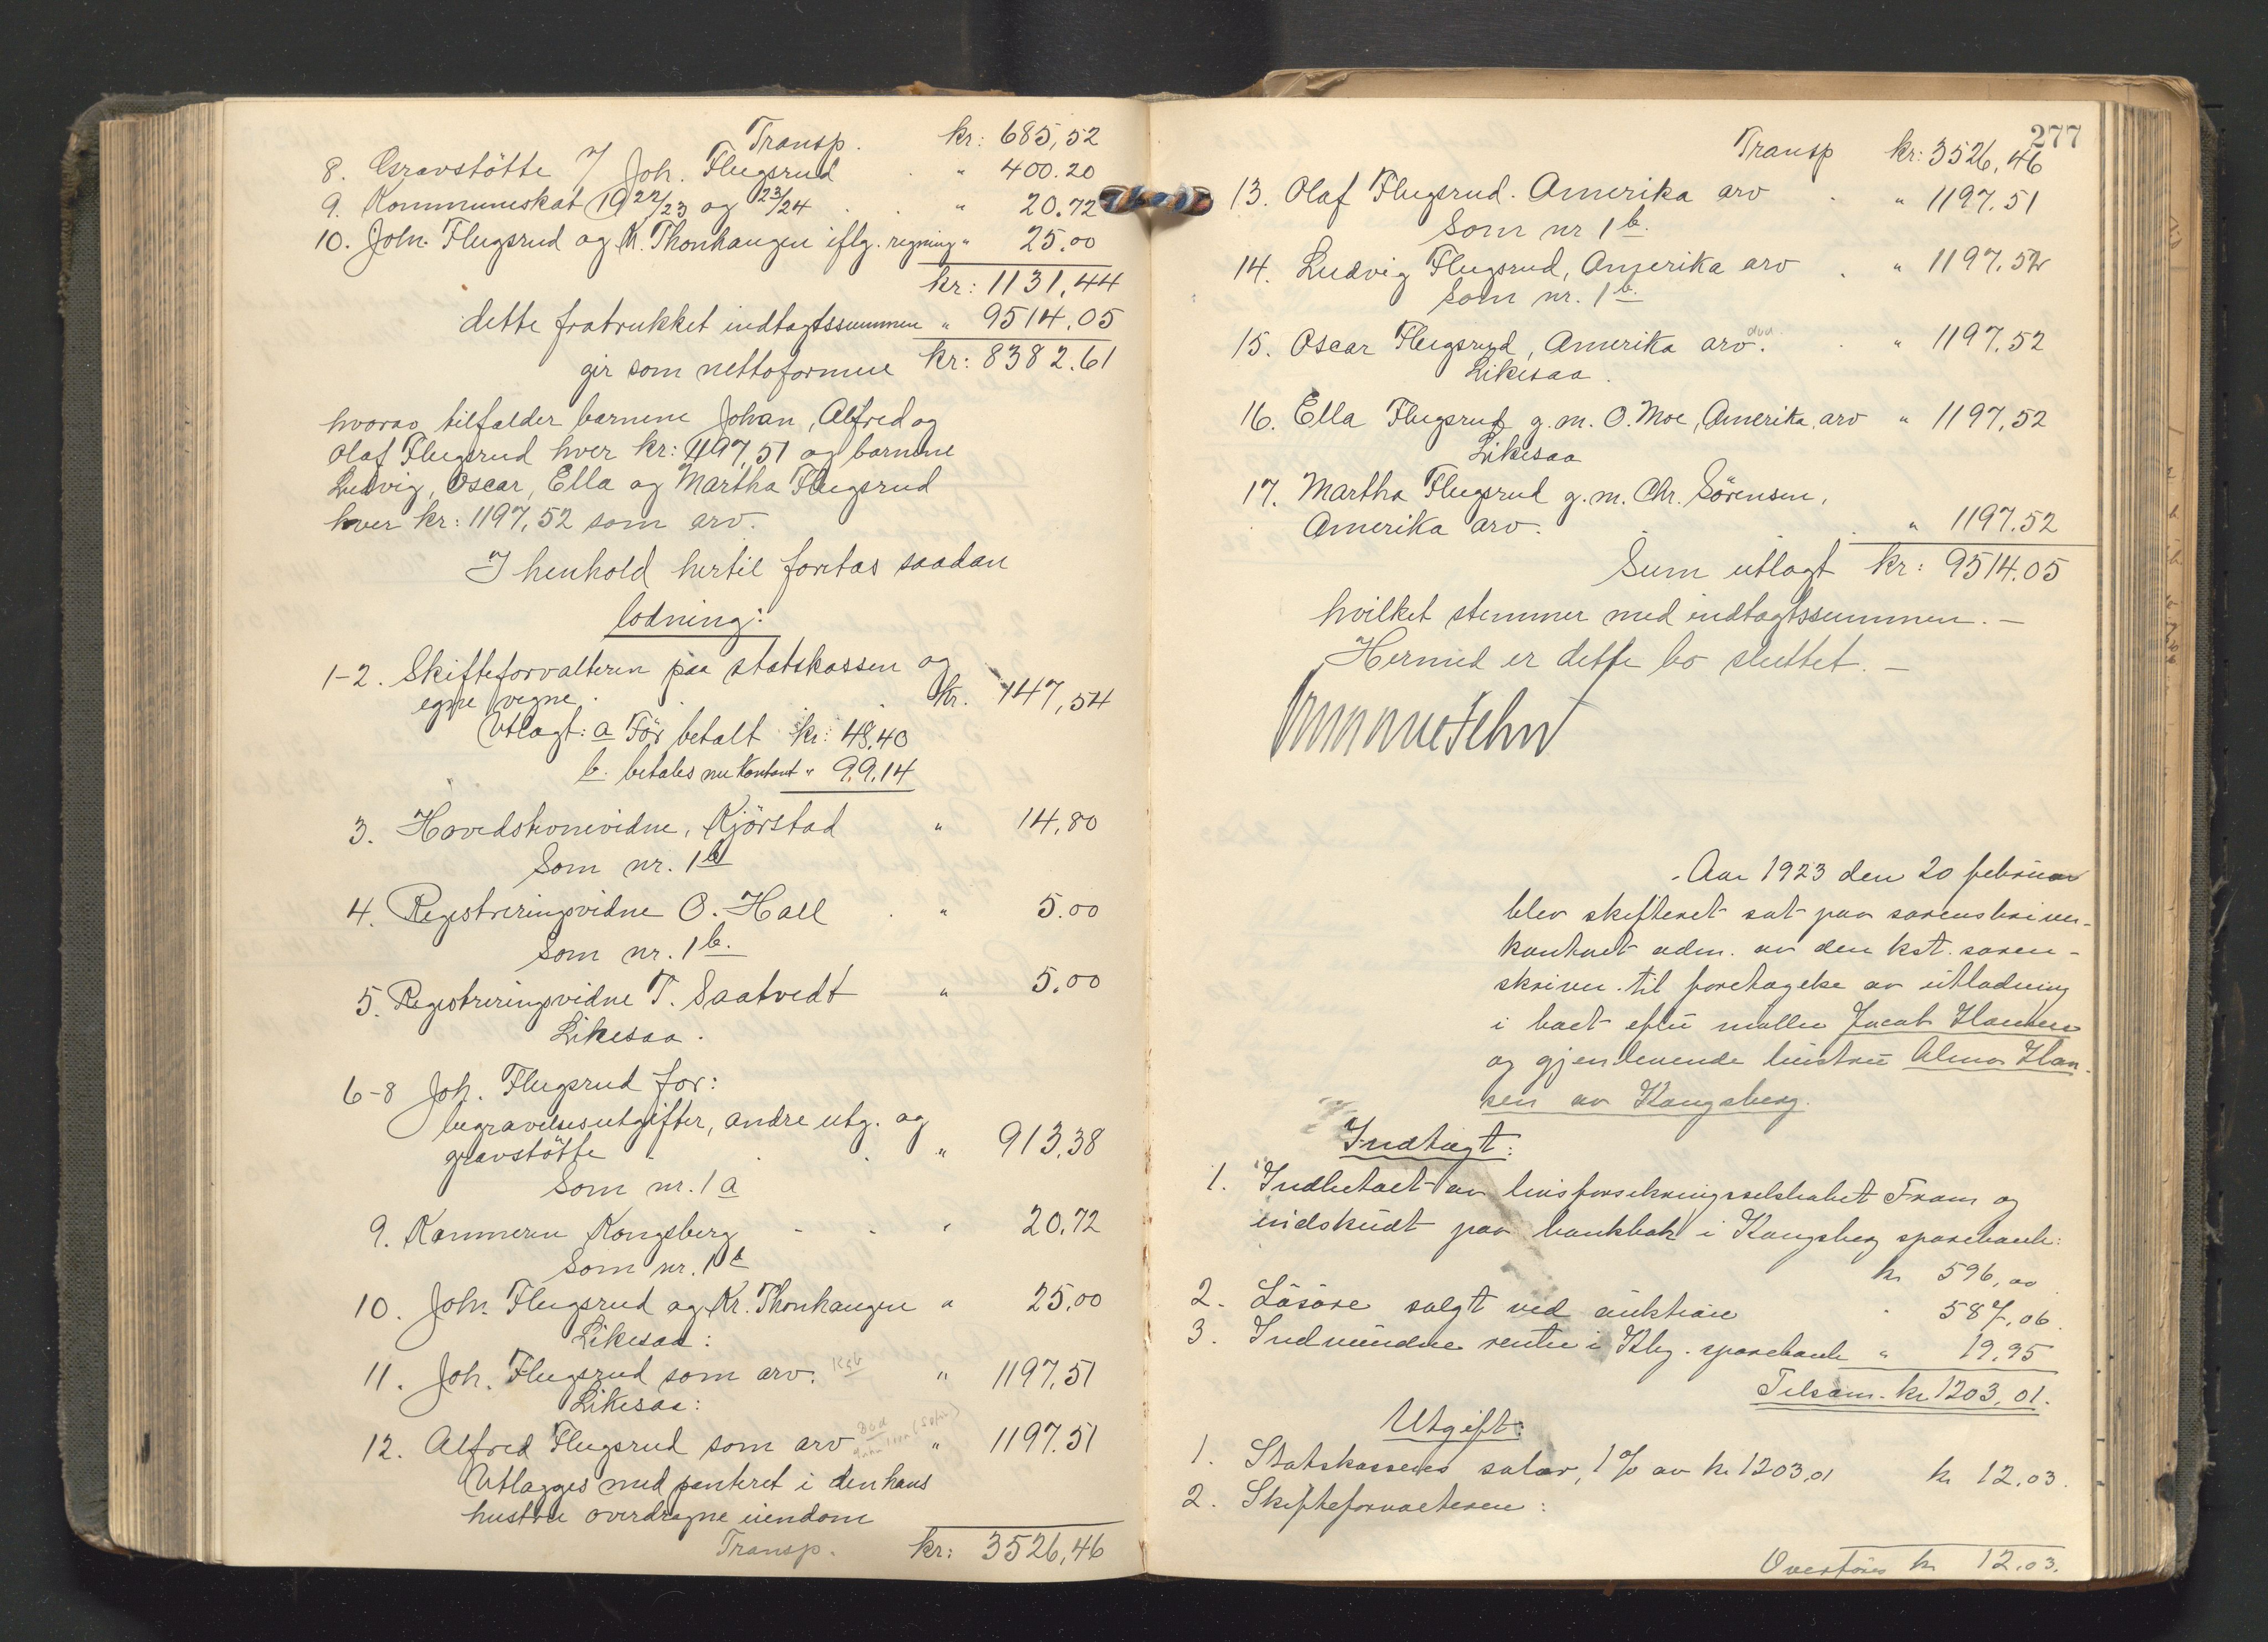 Transp. kr: 685,52
8. Gravstötte / Joh. Flugsrud " 400.20
9. Kommuneskat 1922/23 og 23/24 " 20.72
10. Joh. Flugsrud og K. Thonhaugen iflg. regning " 25.00
kr: 1131,44
dette fratrukket indtægtssummen " 9514.05
gir som nettoformue kr: 8382.61
hvorav tilfalder barnene Johan, Alfred og
Olaf Flugsrud hver kr: 1197,51 og barnene
Ludvig, Oscar, Ella og Martha Flugsrud
hver kr: 1197,52 som arv.
I henhold hertil foretas saadan
lodning:
1-2. Skifteforvalteren paa statskassen og
egne vegne. kr. 147,54
Utlagt: a För betalt kr: 48.40
b. betales nu kontant " 99.14
3. Hovedskrivevidne, Kjörstad " 14,80
Som nr. 1b
4. Registreringsvidne O. Hall " 5.00
Som nr. 1b.
5. Registreringsvidne T. Saatvedt " 5.00
Likesaa.
6-8 Joh. Flugsrud for:
begravelsesutgifter, andre utg. og
gravstötte " 913,38
Som nr. 1a
9. Kemneren Kongsberg " 20,72
Som nr. 1b
10. Joh. Flugsrud og Kr. Thonhaugen " 25.00
Likesaa:
11. Joh. Flugsrud som arv. " 1197,51
Likesaa:
12. Alfred Flugsrud som arv " 1197.51
Utlægges med panteret i den hans
hustru overdragne eiendom
Transp. kr: 3526,46
277
Transp kr: 3526,46
13. Olaf Flugsrud. Amerika arv " 1197.51
Som nr 1b.
14. Ludvig Flugsrud, Amerika arv " 1197.52
Som nr. 1b.
15. Oscar Flugsrud, Amerika arv. " 1197.52
Likesaa.
16. Ella Flugsrud g.m. O. Moe, Amerika, arv " 1197,52
Likesaa
17. Martha Flugsrud g.m. Chr. Sörensen,
Amerika arv. " 1197.52
Sum utlagt kr: 9514.05
hvilket stemmer med indtægtssummen. -
Hermed er dette bo sluttet. -
Aar 1923 den 20 februar
blev skifteret sat paa sorenskriver-
kontoret adm. av den kst. soren-
skriver til foretagelse av utlodning
i boet efter møller Jacob Hansen
og gjenlevende hustru Alma Han-
sen av Kongsberg.
Indtægt:
1. Indbetalt av livsforsikringsselskabet Fram og
indskudt paa bankbok i Kongsberg sparebank:
kr 596,00
2. Løsøre solgt ved auktion " 587,06.
3. Indvundne renter i Kbg. sparebank " 19,95
Tilsam. kr 1203,01.
Utgift:
1. Statskassens salær, 1% av kr 1203,01 kr 12,03.
2. Skifteforvalteren:
Overføres kr 12.03.